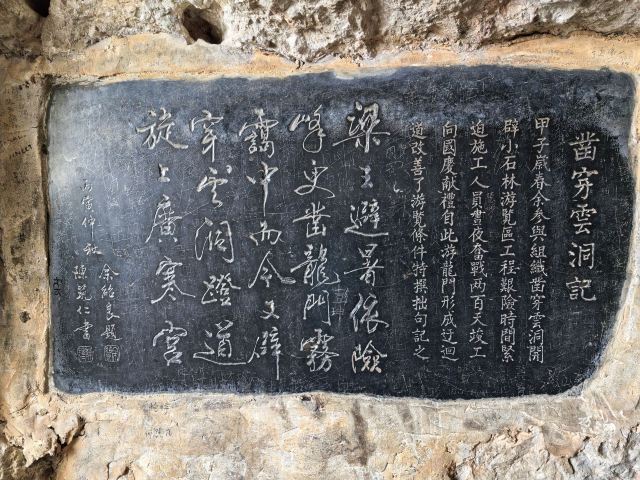 凿穿雲洞記
甲子歲春余參與組織凿穿雲洞開
辟小石林游覽區工程艱險時間緊
迫施工人員晝夜奮戰两百天竣工
向國慶献禮自此游龍門形成迂迴
道改善了游覽條件特撰拙句記之
梁王避暑依險
峰更凿龍門霧
靄中而今又辟
穿雲洞蹬道
旋上廣寒宫
仲秋
余紹良題
陳冕仁書